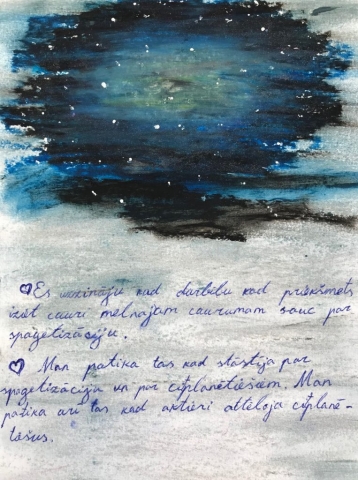 Es uzzināju kad darbību kad priekšmets
iziet cauri melnajam caurumam sauc par
spagetizāciju.
Man patika tas kad stāstīja par
spagetizāciju un par citplanētiešiem. Man
patika arī tas kad aktieri attēloja citplanē-
tešus.